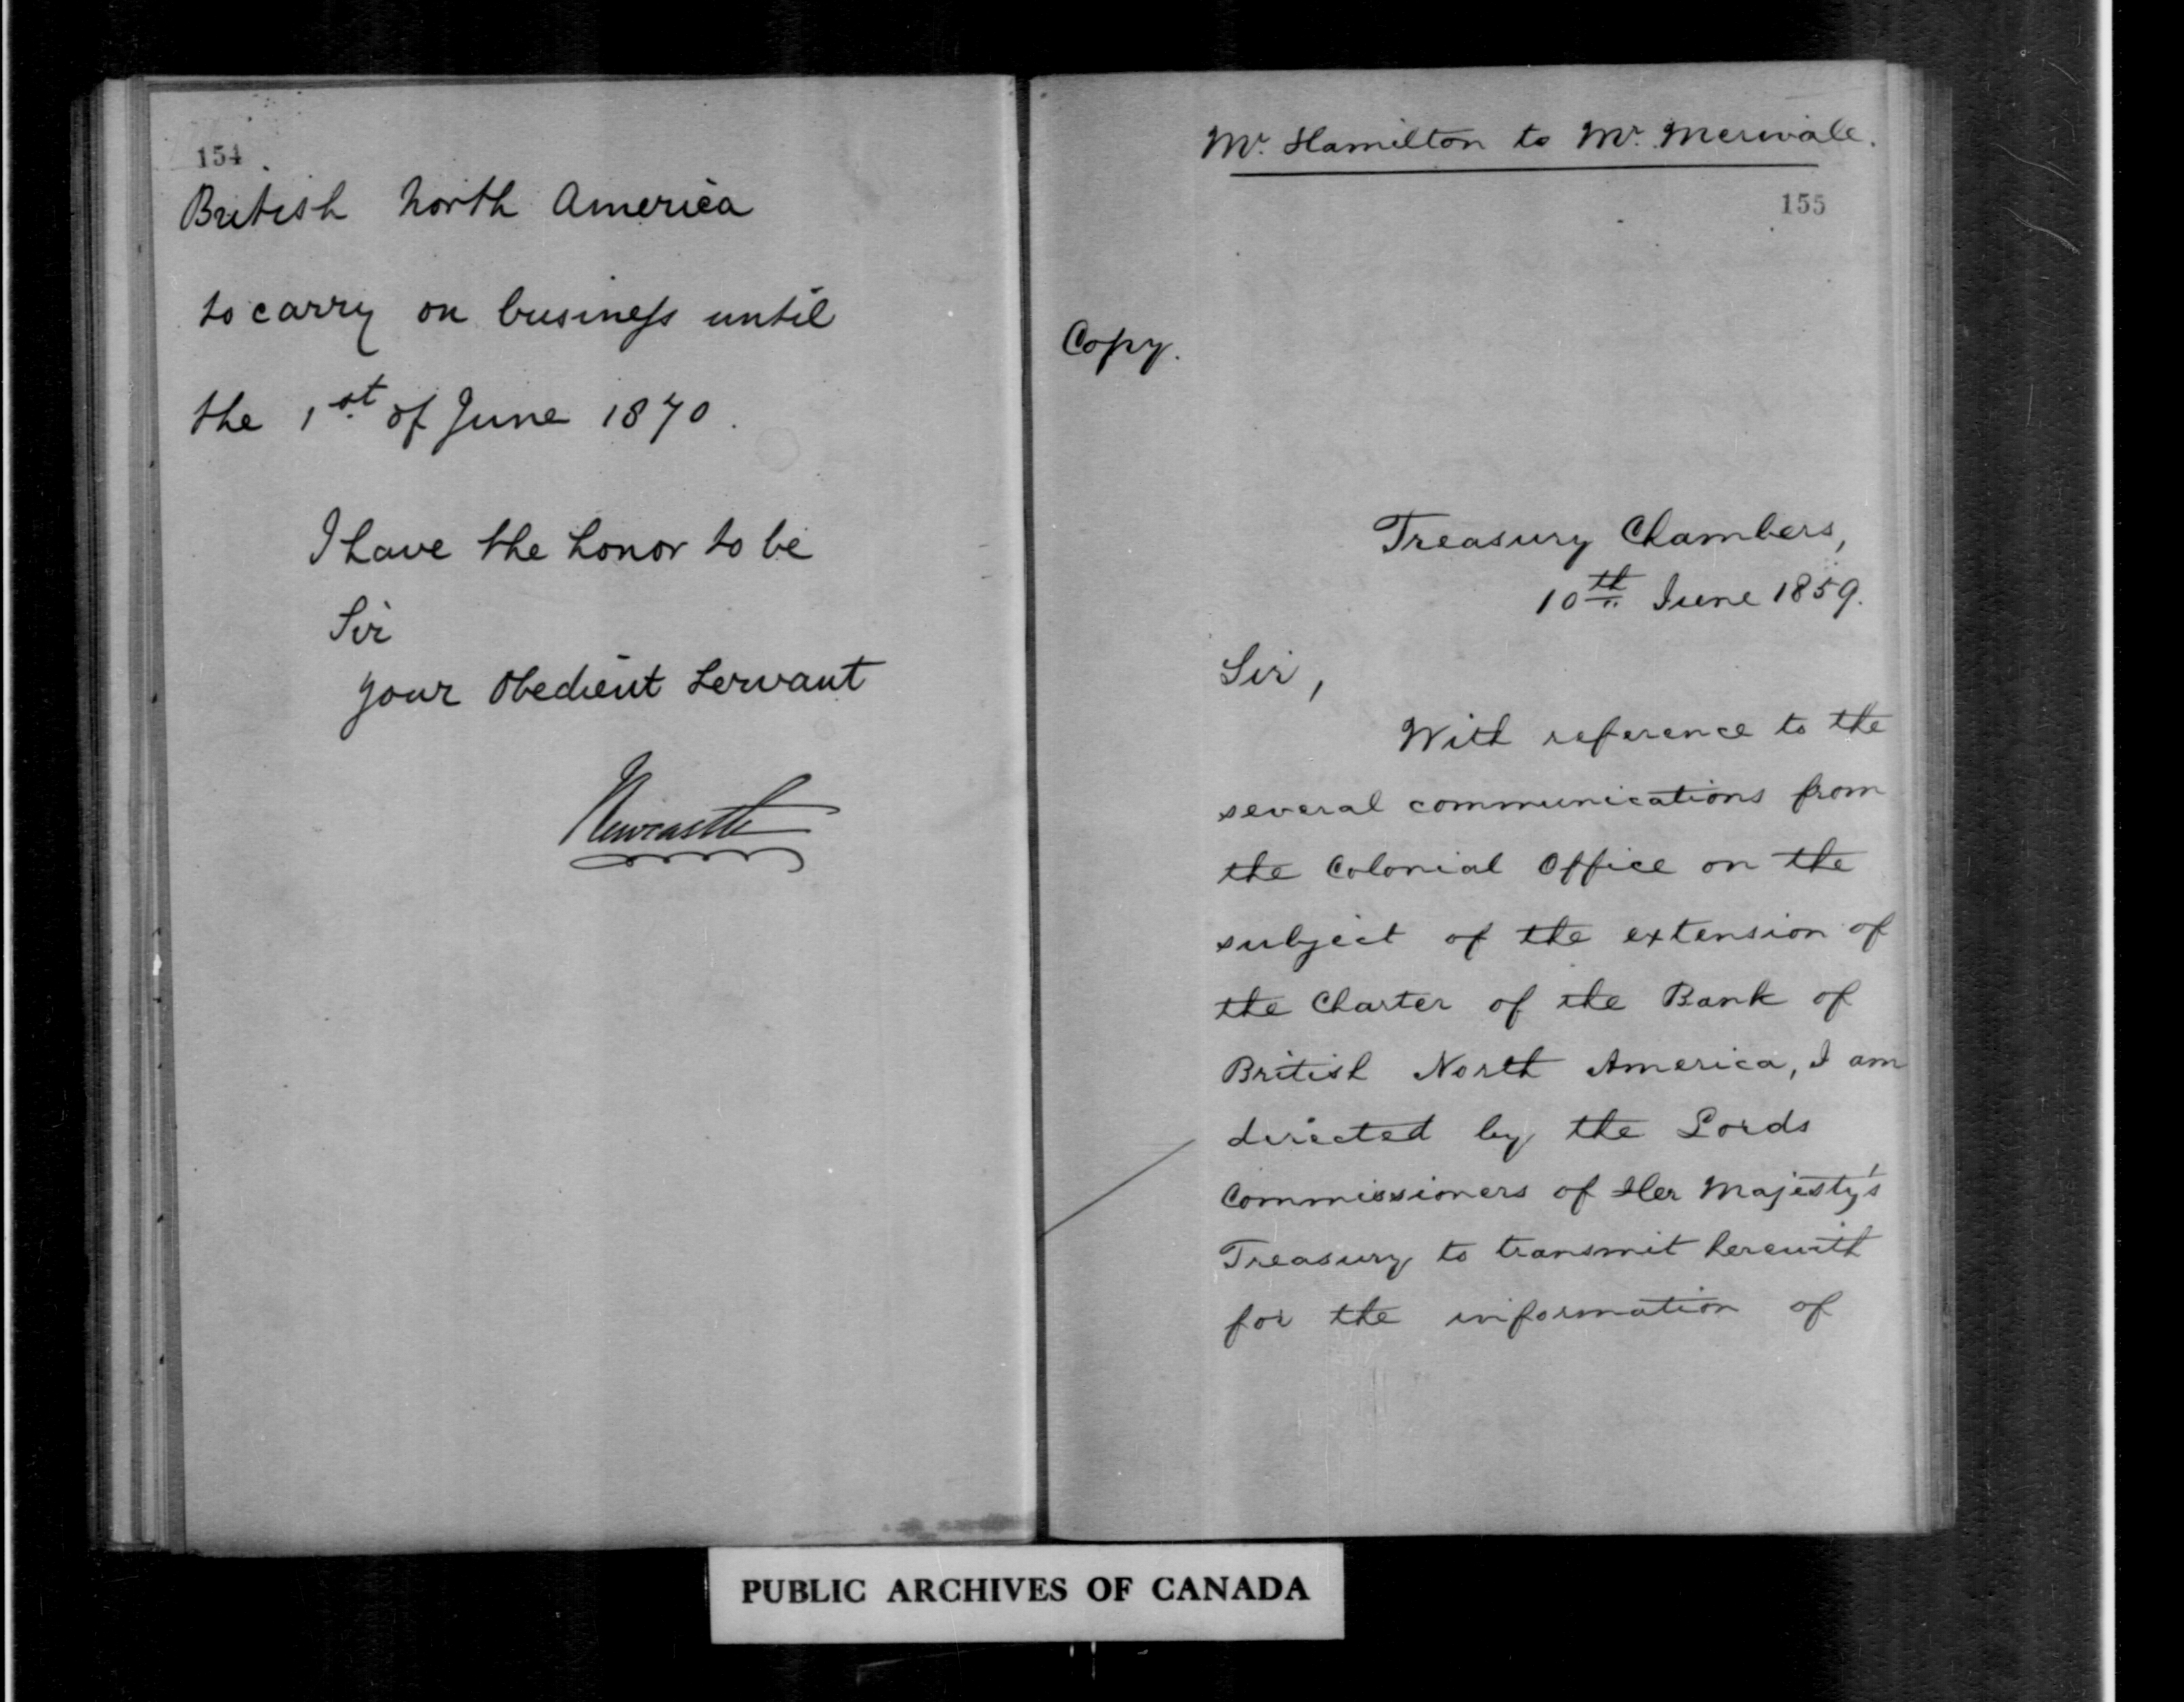 154
British North America
to carry on business until
the 1st of June 1870.
I have the honor to be
Sir
Your Obedient Servant
Newcastle
Mr. Hamilton to Mr. Merivale.
155
Copy.
Treasury Chambers,
10th June 1859.
Sir,
With reference to the
several communications from
the Colonial Office on the
subject of the extension of
the Charter of the Bank of
British North America, I am
directed by the Lords
Commissioners of Her Majesty's
Treasury to transmit herewith
for the information of
PUBLIC ARCHIVES OF CANADA